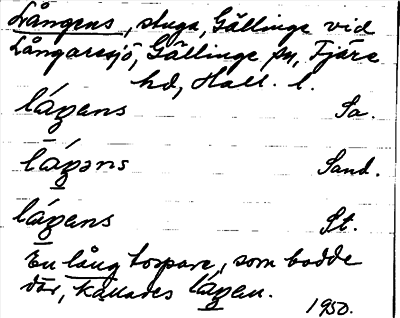 Långens, stuga, Gällinge vid
Långaresjö, Gällinge sn, Fjäre
hd, Hall. l.
lágens Sa.
lágəns Sand.
lágens St.
En lång torpare, som bodde
där, kallades lágen.
1950.